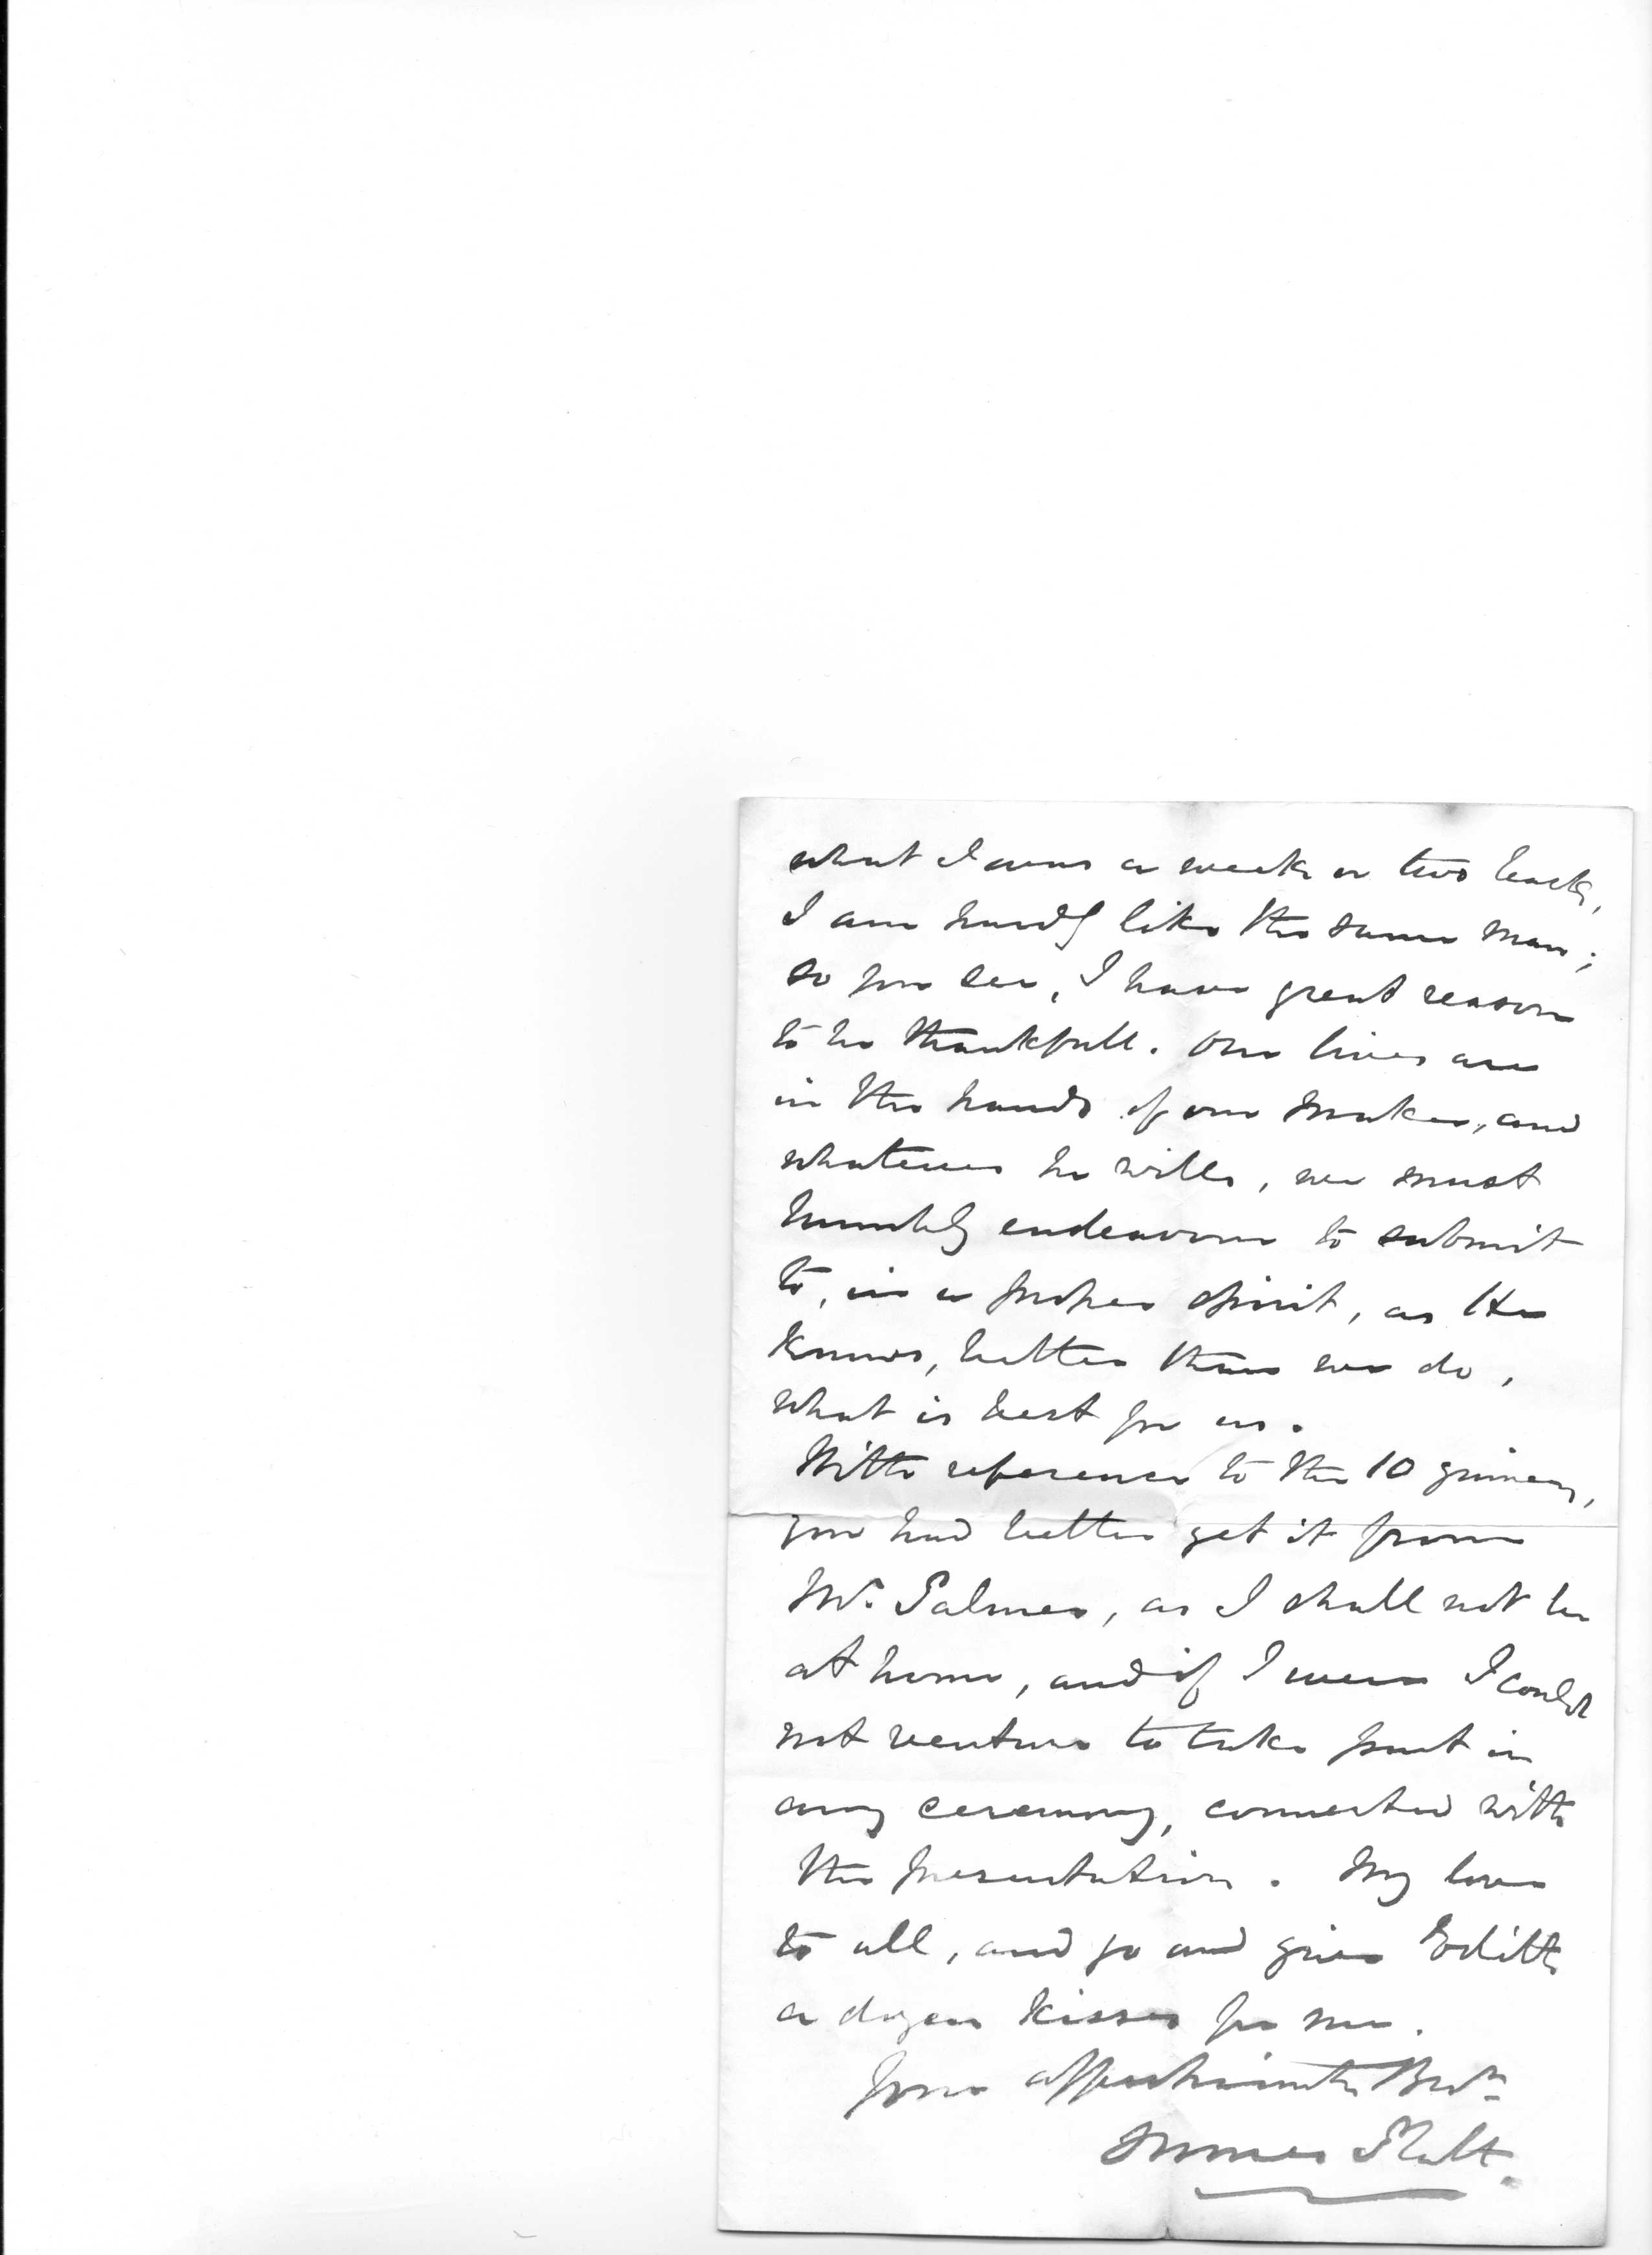 what I was a week or two back,
I am hardly like the same man;
so you see, I have great reason
to be thankfull. Our lives are
in the hands of our Maker, and
whatever he wills, we must
humbly endeavour to submit
to, in a proper spirit, as He
knows, better than we do,
what is best for us.
With reference to the 10 guineas,
you had better get it from
Mr. Palmer, as I shall not be
at home, and if I were I could
not venture to take part in
any ceremony, connected with
the presentation. My love
to all, and go and give Edith
a dozen kisses for me.
Your affectionate Bror
James Platt.